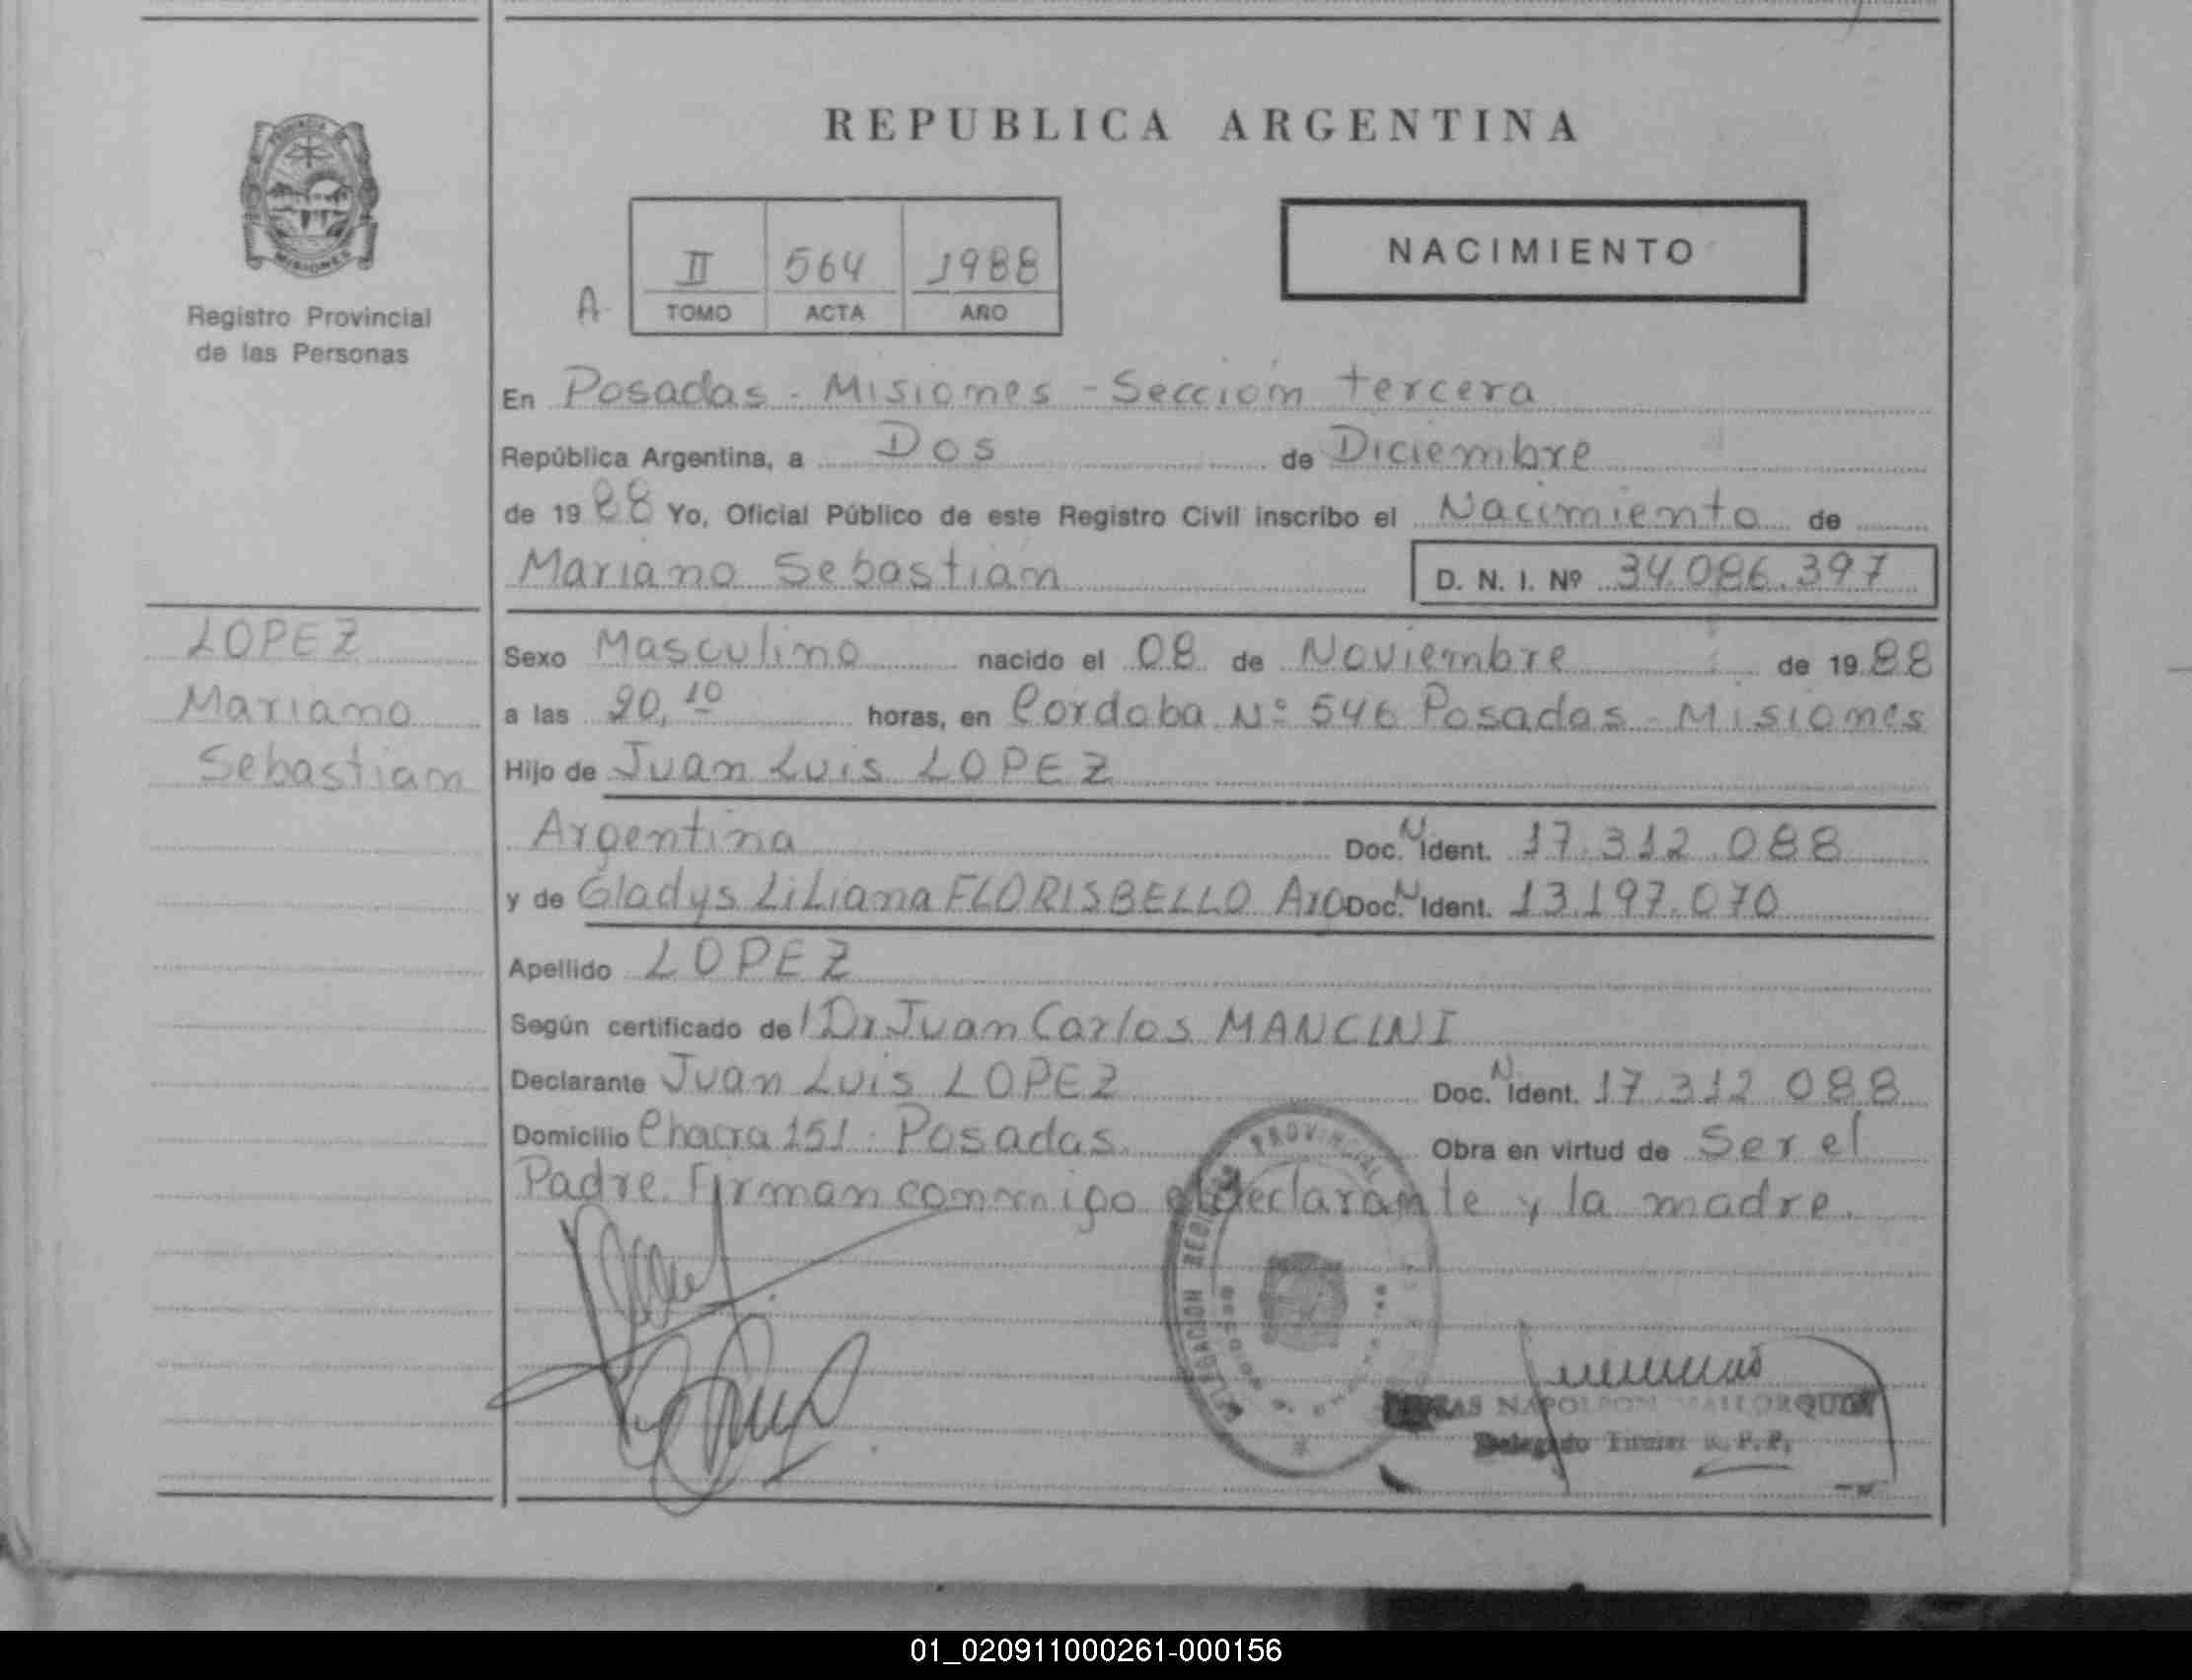 REPUBLICA ARGENTINA
MISIONES
Registro Provincial
de las Personas
A
II 564 1988
TOMO ACTA AÑO
NACIMIENTO
En Posadas - Misiones - Sección tercera
República Argentina, a Dos de Diciembre
de 1988 Yo, Oficial Público de este Registro Civil inscribo el Nacimiento de
Mariano Sebastian D. N. I. Nº 34.086.397
LOPEZ
Mariano
Sebastian
Sexo Masculino nacido el 08 de Noviembre de 1988
a las 20,10 horas, en Cordoba Nº 546 Posadas - Misiones
Hijo de Juan Luis LOPEZ
Argentina Doc. N Ident. 17.312.088
y de Gladys Liliana FLORISBELLO Arg Doc. N Ident. 13.197.070
Apellido LOPEZ
Según certificado del Dr Juan Carlos MANCINI
Declarante Juan Luis LOPEZ Doc. N Ident. 17.312.088
Domicilio Chacra 151 - Posadas Obra en virtud de Ser el
Padre. Firman conmigo el declarante y la madre.
DELEGACION PROVINCIAL
NAPOLEON MALLORQUIN
Delegado Titular R. P. P.
01_020911000261-000156